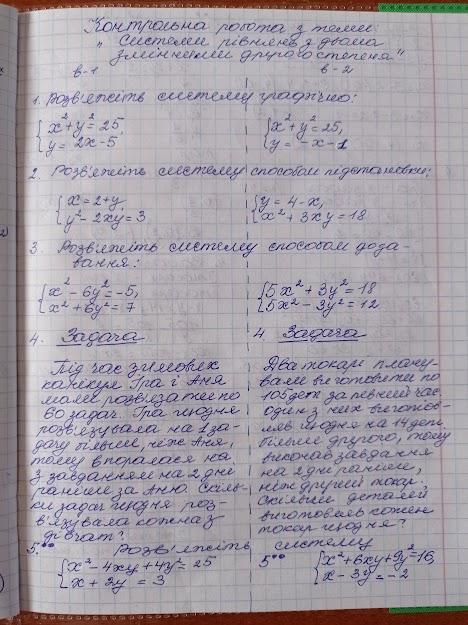 Контрольна робота з теми:
„Системи рівнянь з двома
змінними другого степеня"
в-1 в-2
1. Розв'яжіть систему графічно:
{x²+y²=25, {x²+y²=25,
y=2x-5 y=-x-1
2. Розв'яжіть систему способом підстановки:
{x=2+y, {y=4-x,
y²-2xy=3 x²+3xy=18
3. Розв'яжіть систему способом дода-
вання:
{x²-6y²=-5, {5x²+3y²=18
x²+6y²=7 5x²-3y²=12
4. Задача
Під час зимових
канікул Іра і Аня
мали розв'язати по
60 задач. Іра щодня
розв'язувала на 1 за-
дачу більше, ніж Аня,
тому впоралася на
з завданням на 2 дні
раніше за Аню. Скіль-
ки задач щодня роз-
в'язувала кожна з
дівчат?
4 Задача
Два токарі плану-
вали виготовити по
105 дет за певний час.
один з них виготов-
ляв щодня на 14 дет.
більше другого, тому
виконав завдання
на 2 дні раніше,
ніж другий токар.
Скільки деталей
виготовляв кожен
токар щодня?
5.•• Розв'яжіть систему
{x²-4xy+4y²=25 5•• {x²+6xy+9y²=16,
x+2y=3 x-3y=-2